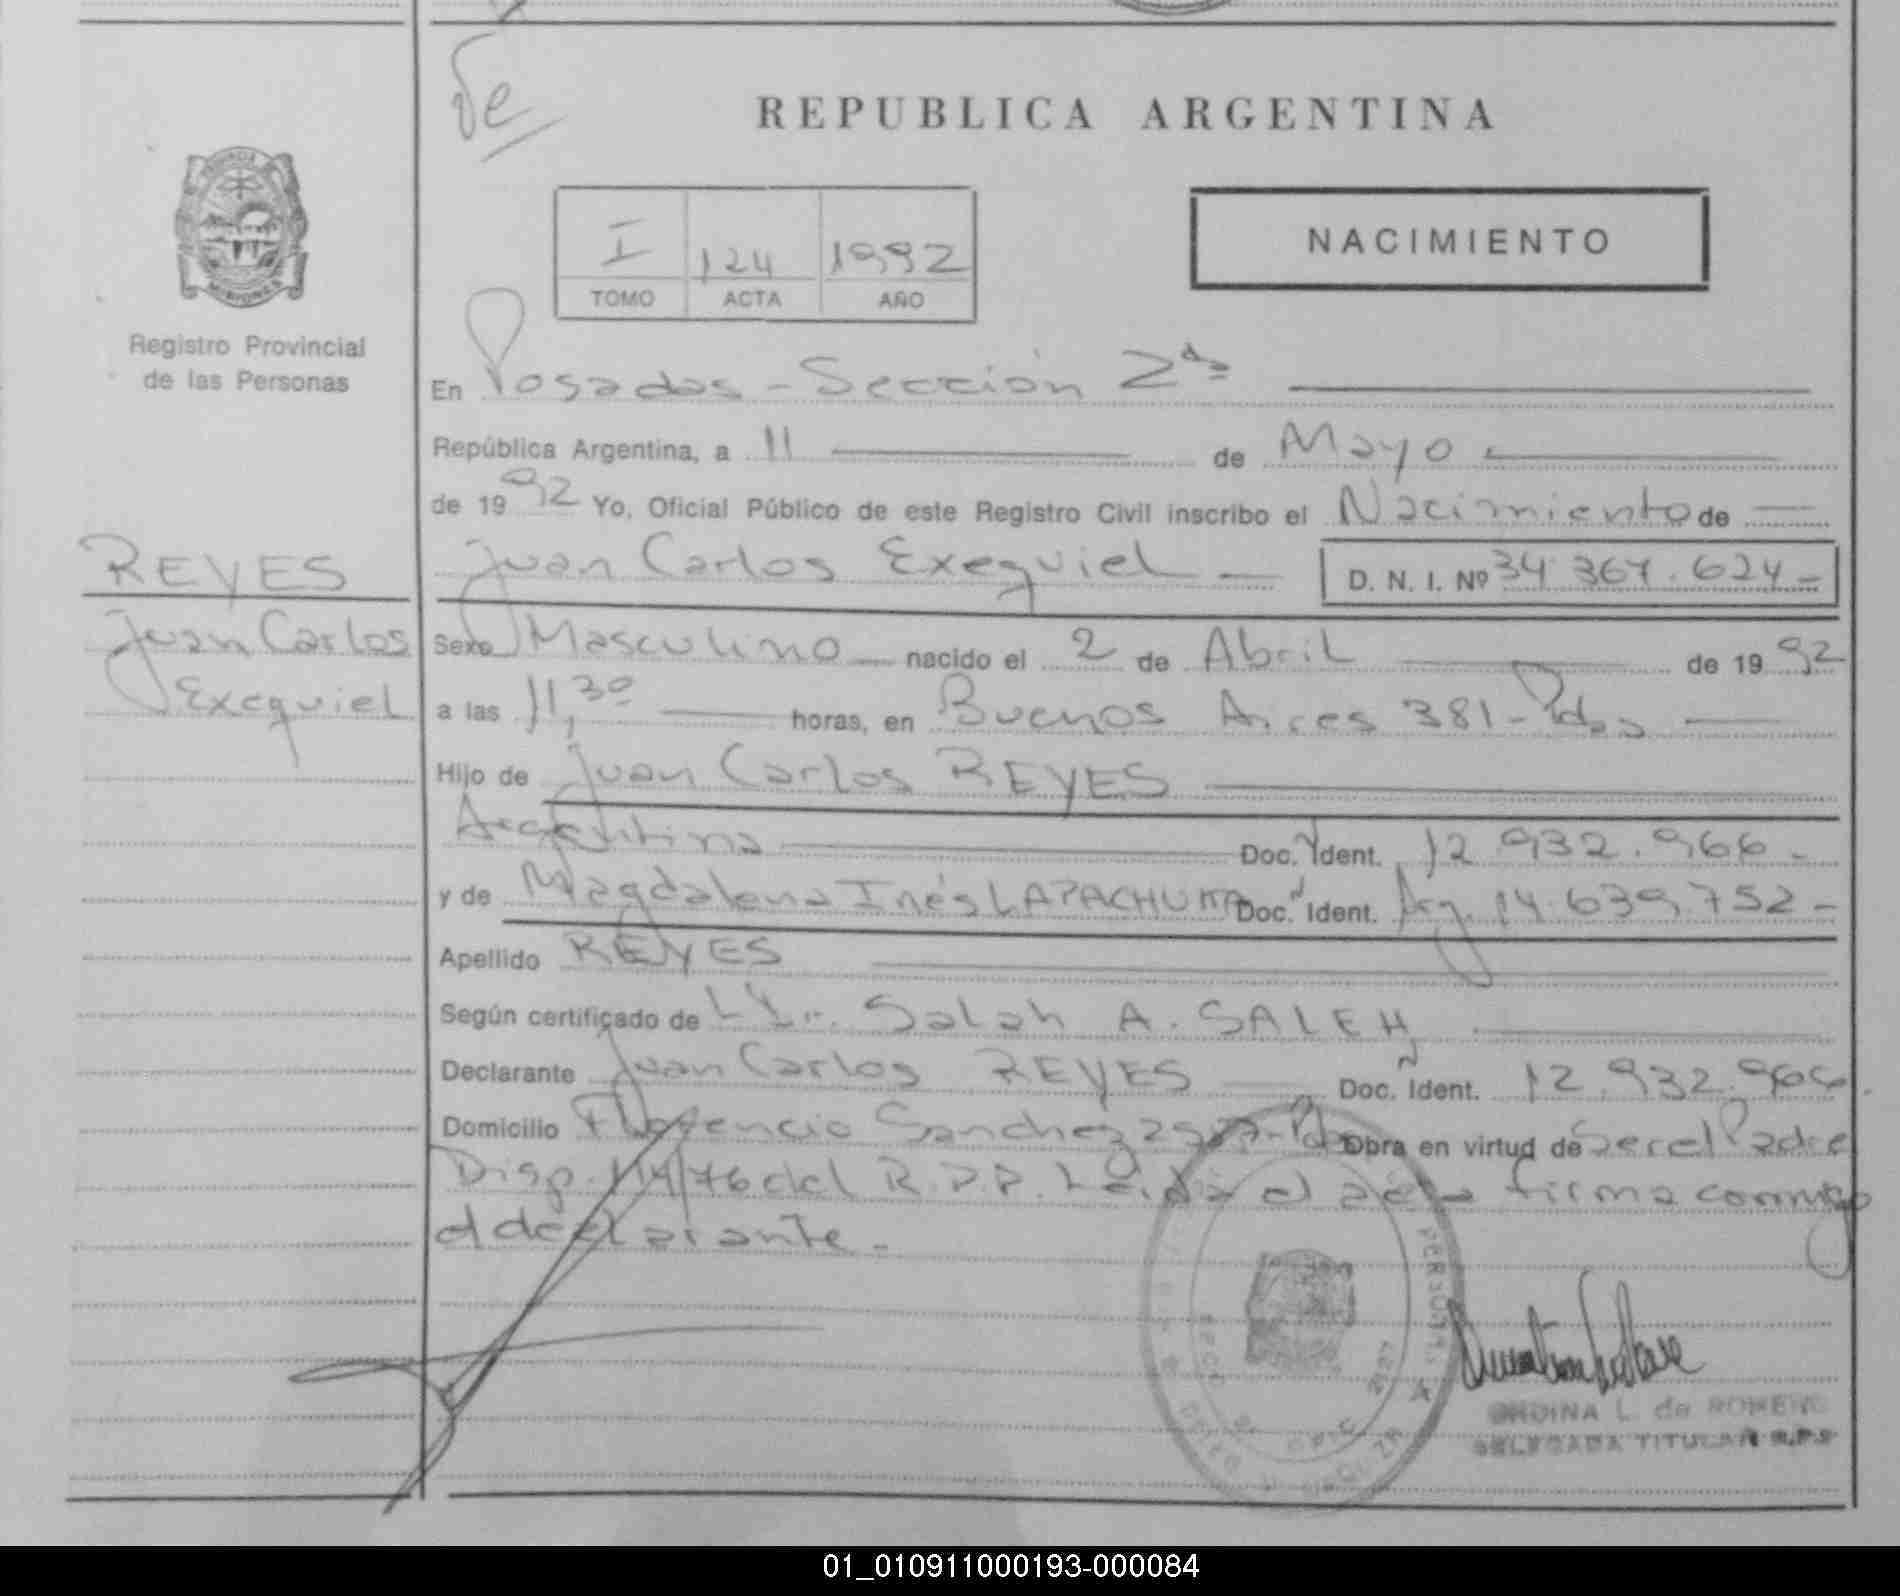 REPUBLICA ARGENTINA
MISIONES
Registro Provincial
de las Personas
I 124 1992
TOMO ACTA AÑO
NACIMIENTO
En Posadas - Sección 2da
República Argentina, a 11 de Mayo
de 1992 Yo, Oficial Público de este Registro Civil inscribo el Nacimiento de
Juan Carlos Exequiel D. N. I. Nº 34.367.624
REYES
Juan Carlos
Exequiel
Sexo Masculino nacido el 2 de Abril de 1992
a las 11,30 horas, en Buenos Aires 381 - Pdas
Hijo de Juan Carlos REYES
Argentina Doc. Ident. 12.932.966
y de Magdalena Inés Doc. Ident. Arg. 14.639.752
Apellido REYES
Según certificado de Salah A. SALEH
Declarante Juan Carlos REYES Doc. Ident. 12.932.966
Domicilio Florencio Sanchez Obra en virtud de Ser el Padre
Disp. 114/76 del R.P.P. Leida el acta firma conmigo
el declarante.
ONDINA L. de ROMERO
DELEGADA TITULAR R.P.P.
01_010911000193-000084